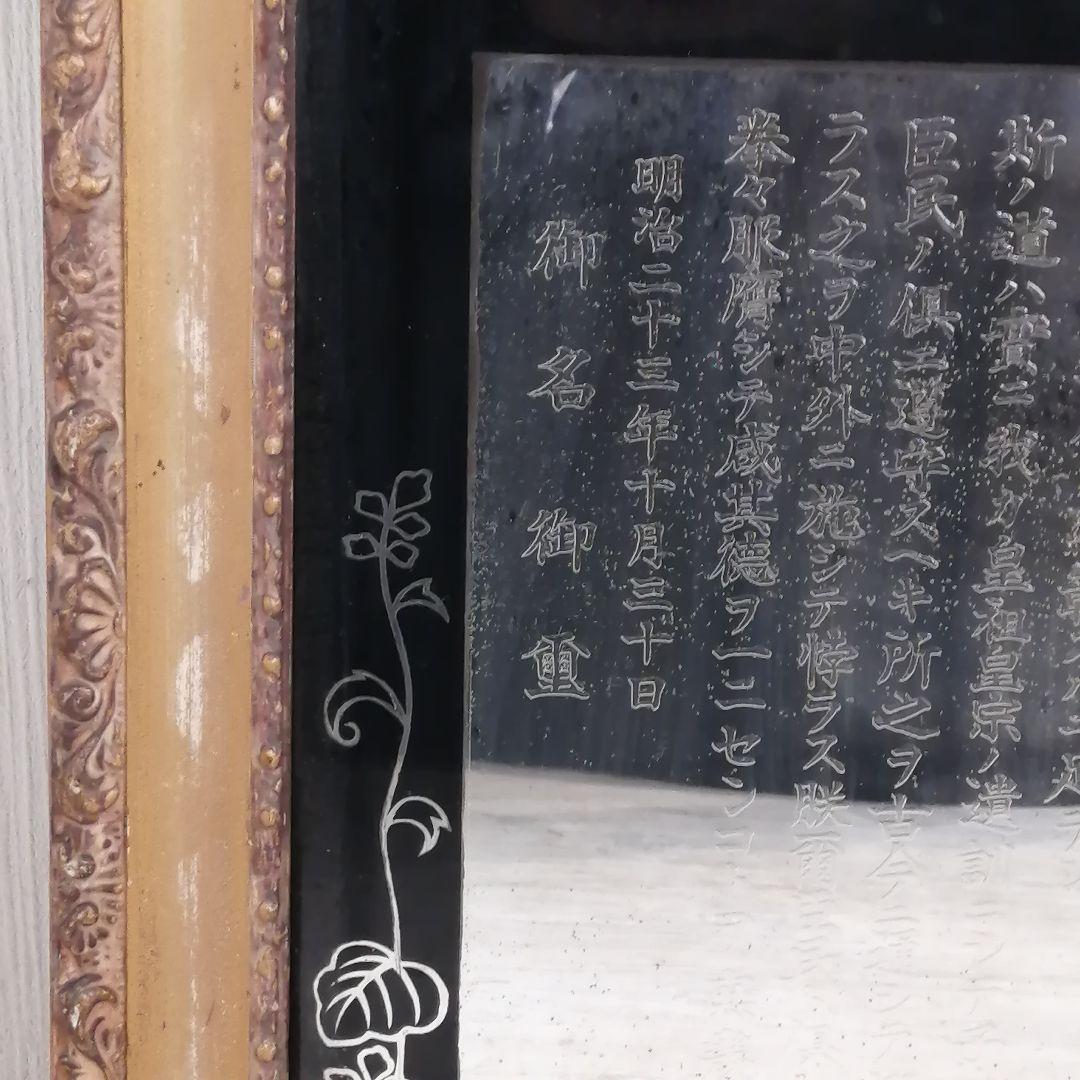 スルニ足
斯ノ道ハ實ニ我カ皇祖皇宗ノ遺訓ニシテ
臣民ノ俱ニ遵守スヘキ所之ヲ古今ニ通シテ
ラス之ヲ中外ニ施シテ悖ラス朕爾臣
拳々服膺シテ咸其德ヲ一ニセンコトヲ
明治二十三年十月三十日
御名御璽